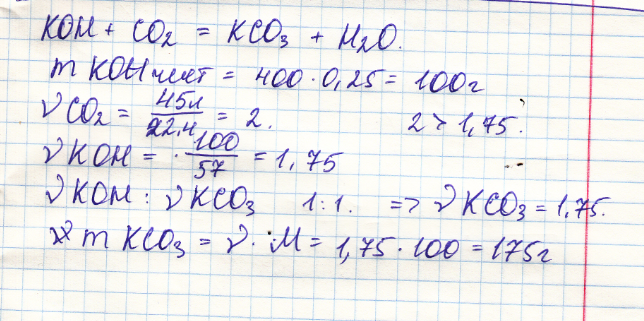 KOH + CO₂ = KCO₃ + H₂O.
m KOH чист = 400 · 0,25 = 100г
ν CO₂ = 45л/22.4 = 2. 2 > 1,75.
ν KOH = 100/57 = 1,75
ν KOH : ν KCO₃ 1:1. => ν KCO₃ = 1,75.
m KCO₃ = ν · M = 1,75 · 100 = 175г